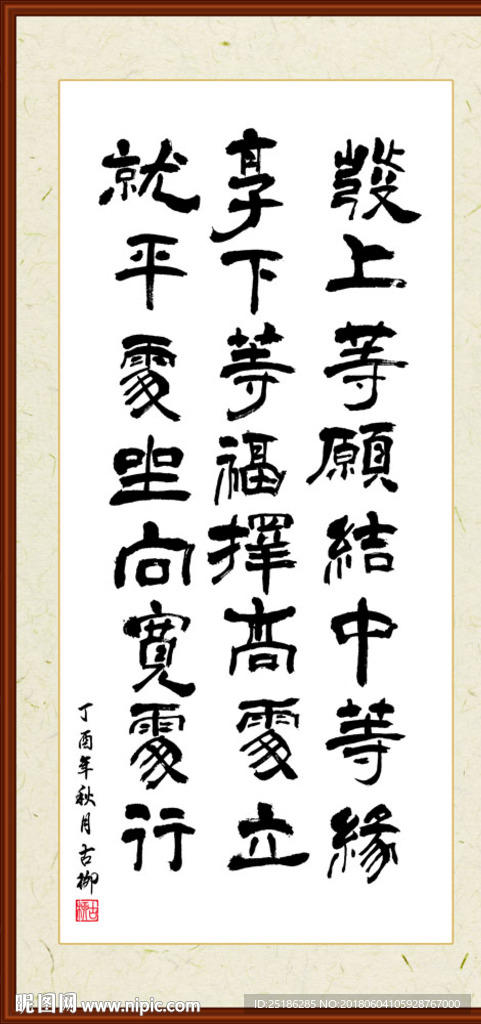 發上等願結中等緣
享下等福擇高處立
就平處坐向寬處行
丁酉年秋月古柳
昵图网 www.nipic.com
ID:25186285 NO:20180604105928767000